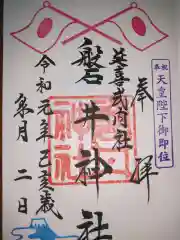 奉祝
天皇陛下御即位
奉拝
延喜式内社
磐井神社
令和元年己亥歳
月二日